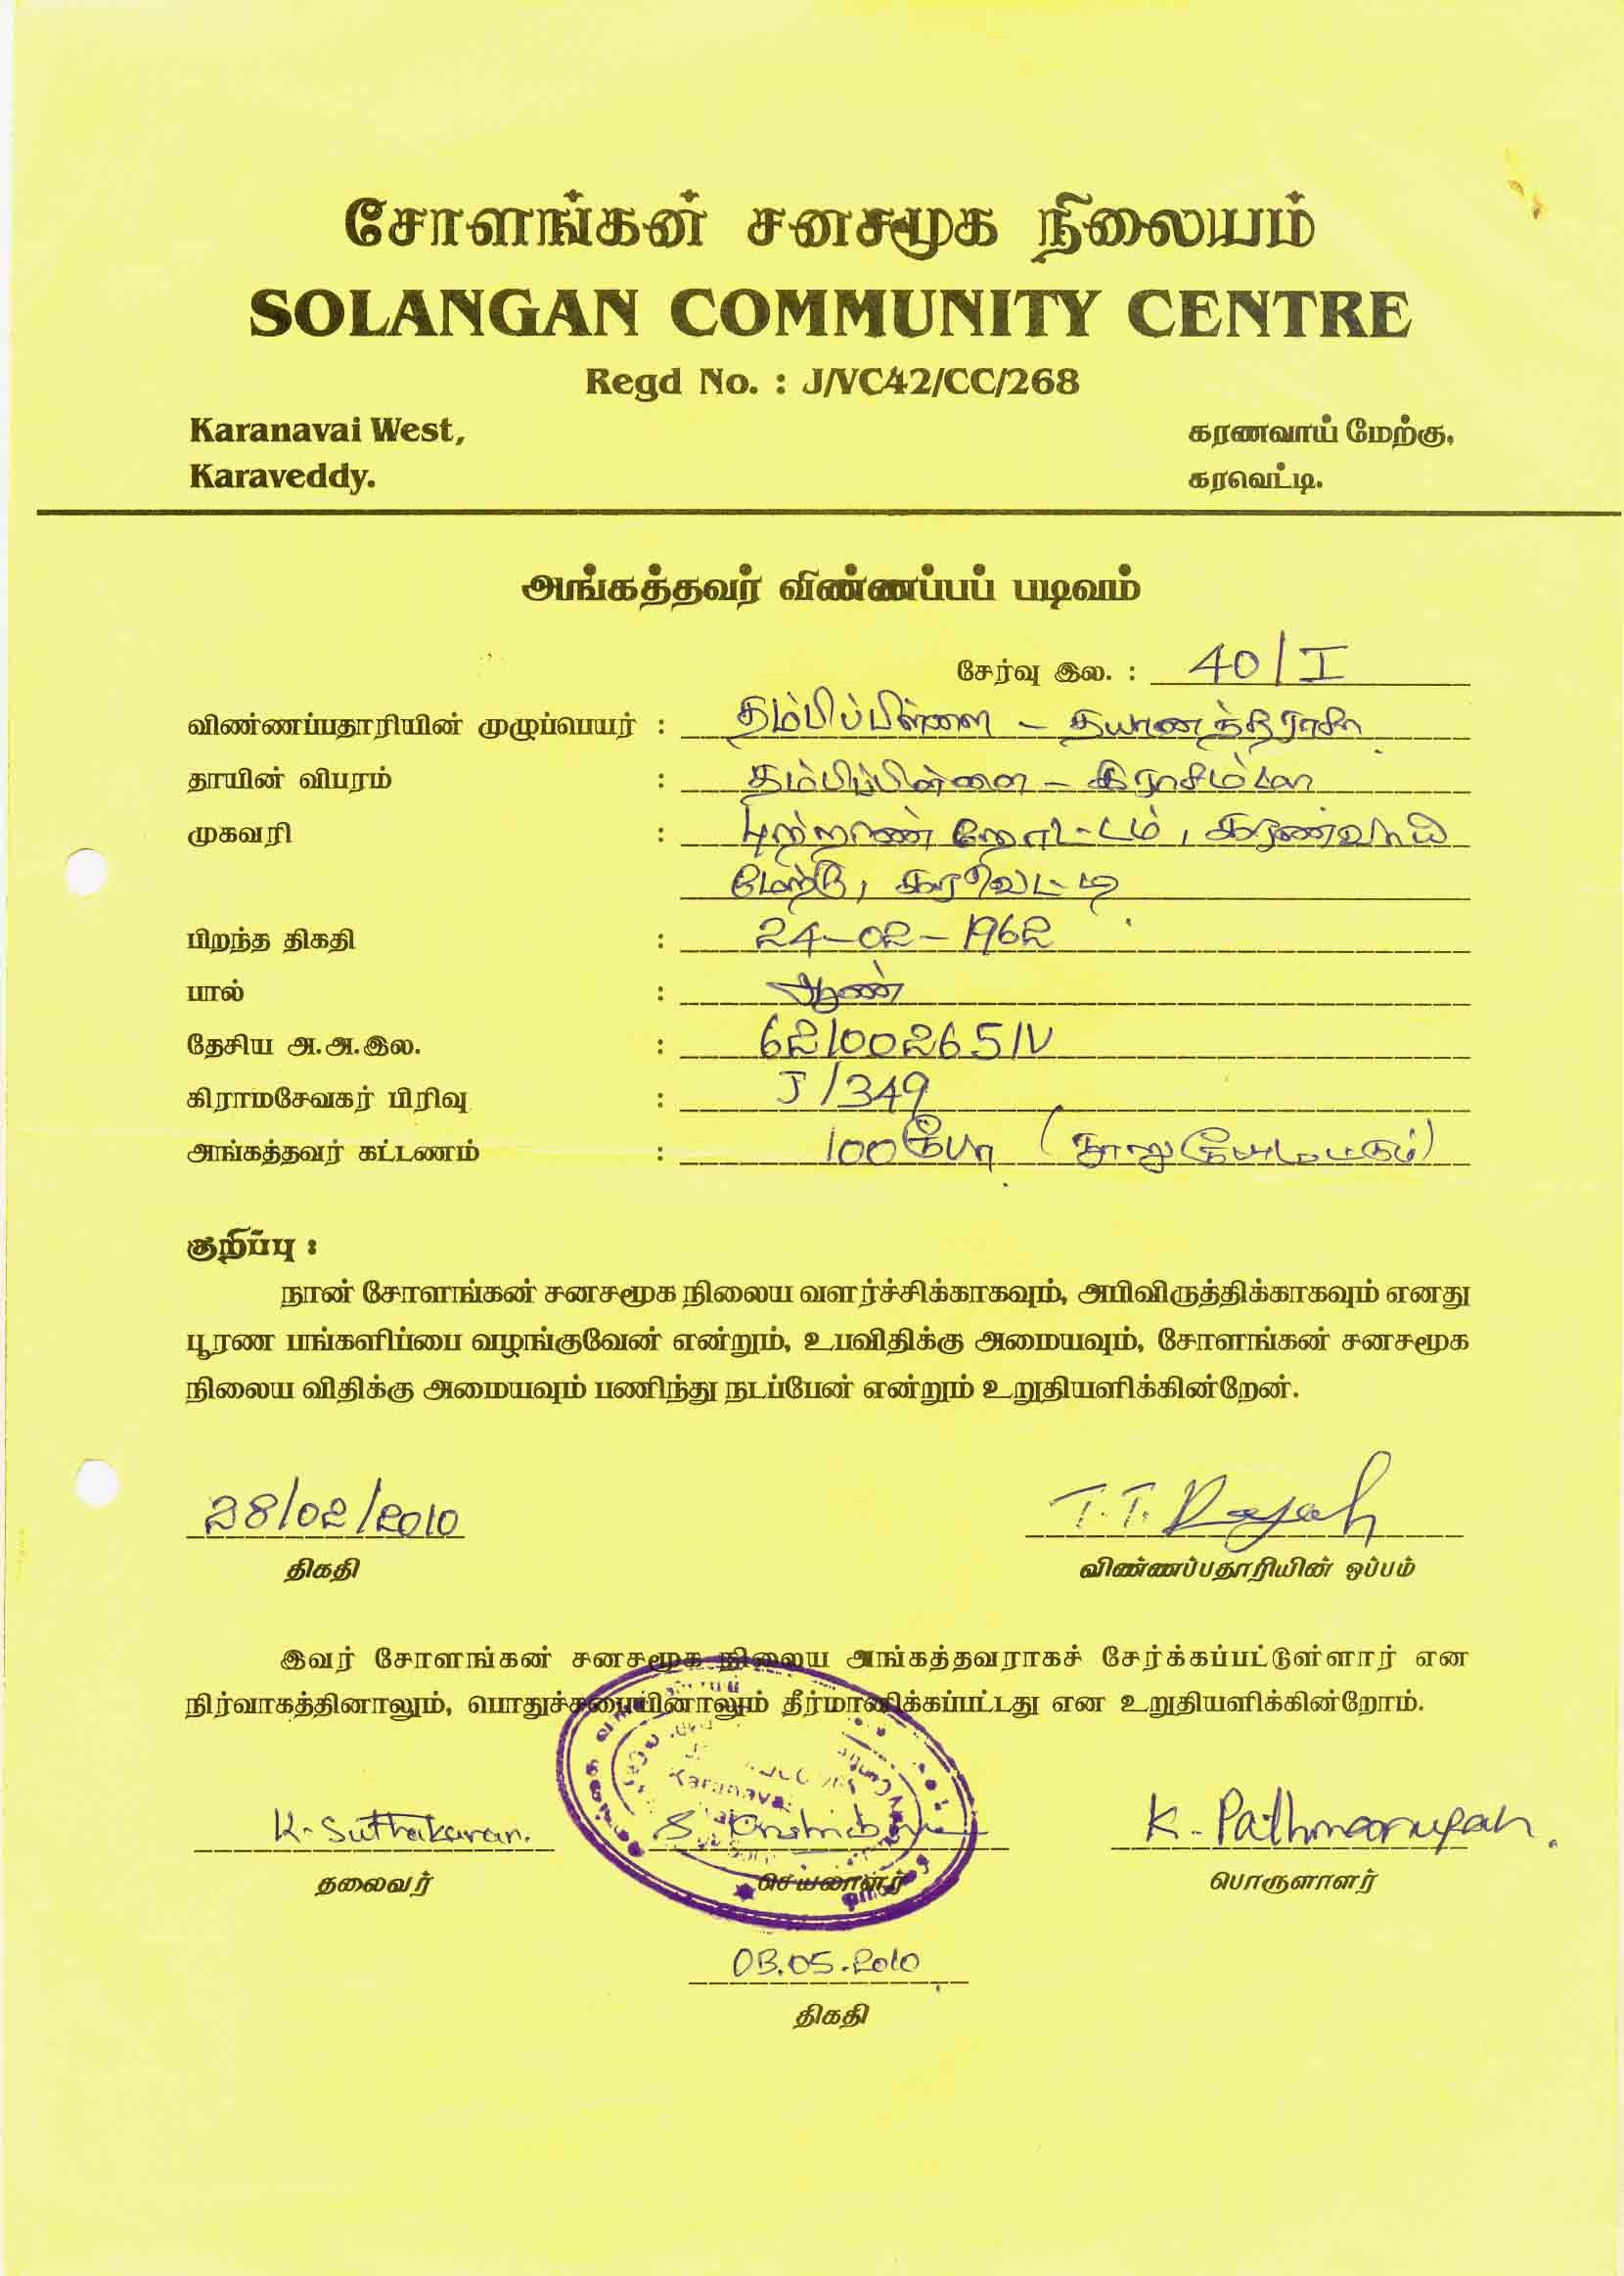 சோளங்கன் சனசமூக நிலையம்
SOLANGAN COMMUNITY CENTRE
Regd No. : J/VC42/CC/268
Karanavai West,
கரணவாய் மேற்கு,
Karaveddy.
கரவெட்டி.
அங்கத்தவர் விண்ணப்பப் படிவம்
சேர்வு இல. : 40/I
விண்ணப்பதாரியின் முழுப்பெயர் : தம்பிப்பிள்ளை -
தாயின் விபரம் : தம்பிப்பிள்ளை - இராசம்மா
முகவரி : தோட்டம், கரணவாய்
மேற்கு, கரவெட்டி
பிறந்த திகதி : 24-02-1962
பால் : ஆண்
தேசிய அ.அ.இல. :
கிராமசேவகர் பிரிவு : J/349
அங்கத்தவர் கட்டணம் : 100
குறிப்பு :
நான் சோளங்கன் சனசமூக நிலைய வளர்ச்சிக்காகவும், அபிவிருத்திக்காகவும் எனது
பூரண பங்களிப்பை வழங்குவேன் என்றும், உபவிதிக்கு அமையவும், சோளங்கன் சனசமூக
நிலைய விதிக்கு அமையவும் பணிந்து நடப்பேன் என்றும் உறுதியளிக்கின்றேன்.
28/02/2010
T.T. Rajah
திகதி
விண்ணப்பதாரியின் ஒப்பம்
இவர் சோளங்கன் சனசமூக நிலைய அங்கத்தவராகச் சேர்க்கப்பட்டுள்ளார் என
நிர்வாகத்தினாலும், பொதுச்சபையினாலும் தீர்மானிக்கப்பட்டது என உறுதியளிக்கின்றோம்.
Karanavai
K. Suthakaran.
K. Pathmarupah.
தலைவர்
செயலாளர்
பொருளாளர்
03.05.2010
திகதி